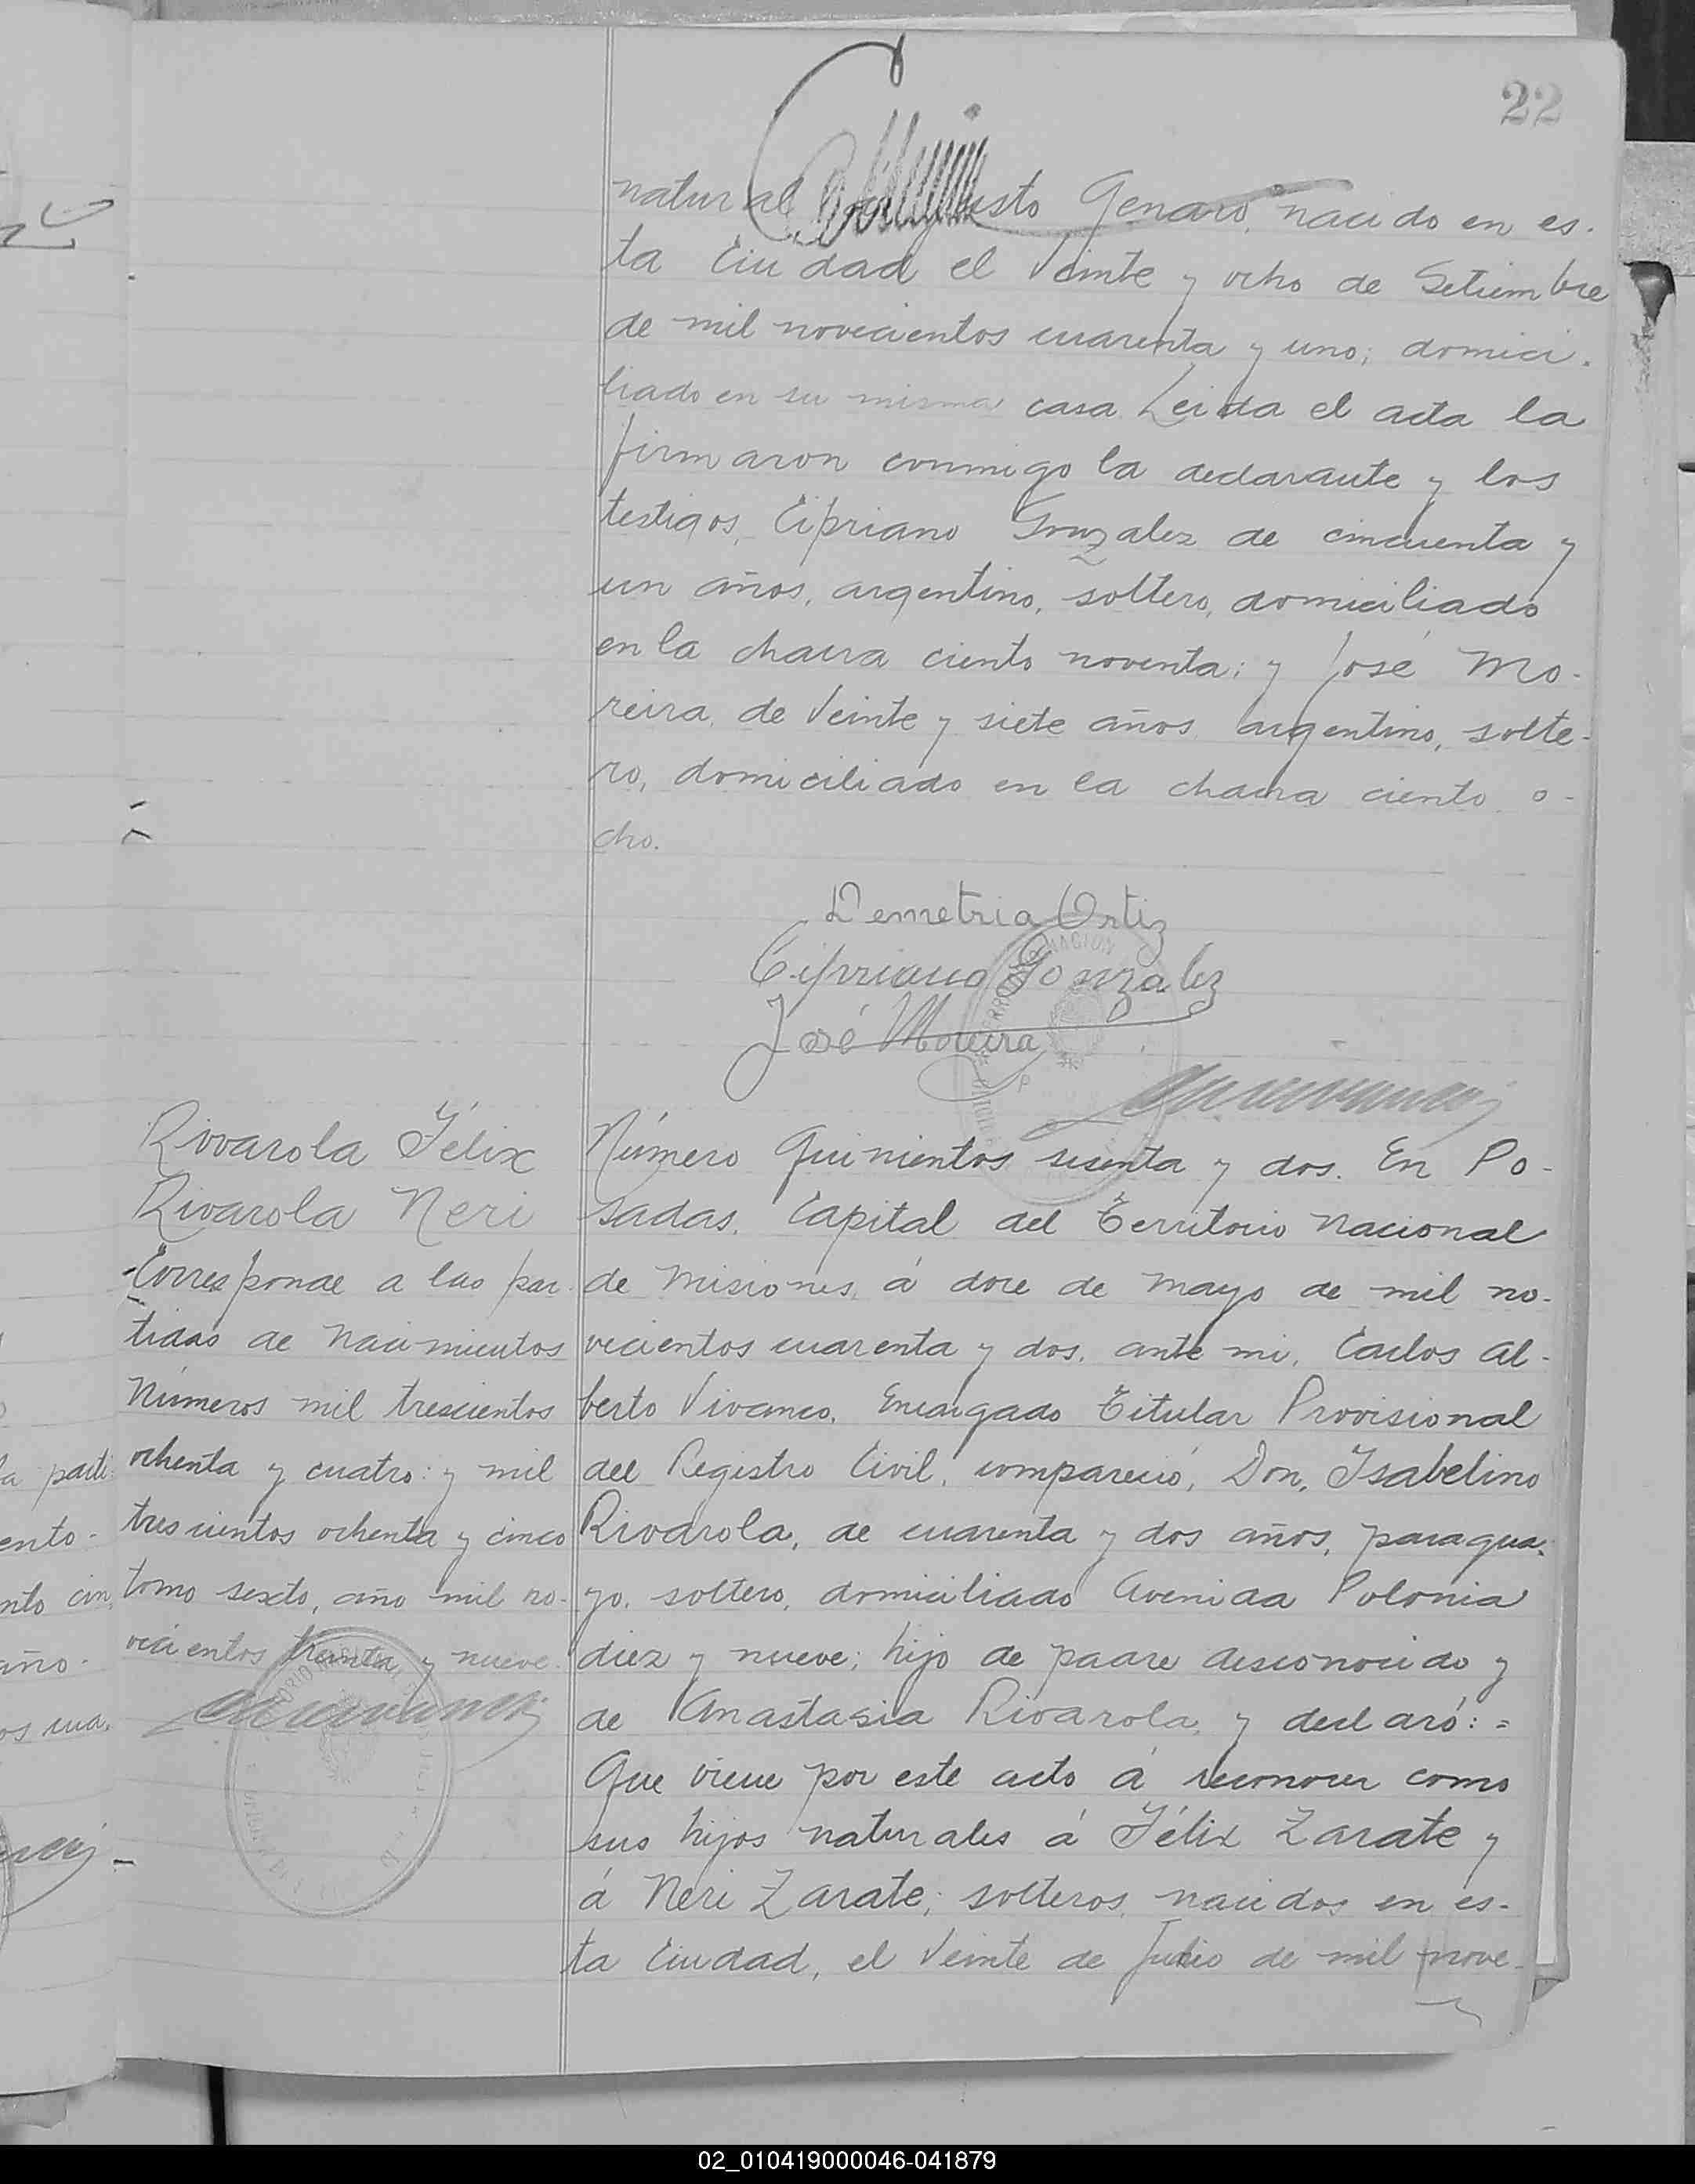 22
natural Augusto Genaro, nacido en es-
ta Ciudad el Veinte y ocho de Setiembre
de mil novecientos cuarenta y uno; domici-
liado en su misma casa. Leida el acta la
firmaron conmigo la declarante y los
testigos, Cipriano Gonzalez de cincuenta y
un años, argentino, soltero, domiciliado
en la chacra ciento noventa; y José Mo-
reira, de Veinte y siete años, argentino, solte-
ro, domiciliado en la chacra ciento o-
cho.
Demetria Ortiz
Cipriano Gonzalez
José Moreira
Rivarola Félix
Rivarola Neri
Corresponde a las par-
tidas de Nacimientos
Números mil trescientos
ochenta y cuatro: y mil
trescientos ochenta y cinco
tomo sexto, año mil no-
vecientos treinta y nueve.
Número Quinientos sesenta y dos. En Po-
sadas, Capital del Territorio Nacional
de Misiones, á doce de Mayo de mil no-
vecientos cuarenta y dos, ante mi, Carlos Al-
berto Vivanco, Encargado Titular Provisional
del Registro Civil, compareció, Don, Isabelino
Rivarola, de cuarenta y dos años, paragua-
yo, soltero, domiciliado Avenida Polonia
diez y nueve; hijo de padre desconocido y
de Anastasia Rivarola, y declaró: =
Que viene por este acto á reconocer como
sus hijos naturales á Félix Zarate y
á Neri Zarate; solteros, nacidos en es-
ta Ciudad, el Veinte de Julio de mil nove-
a parti
ento-
nto cin
año-
os cua-
02_010419000046-041879